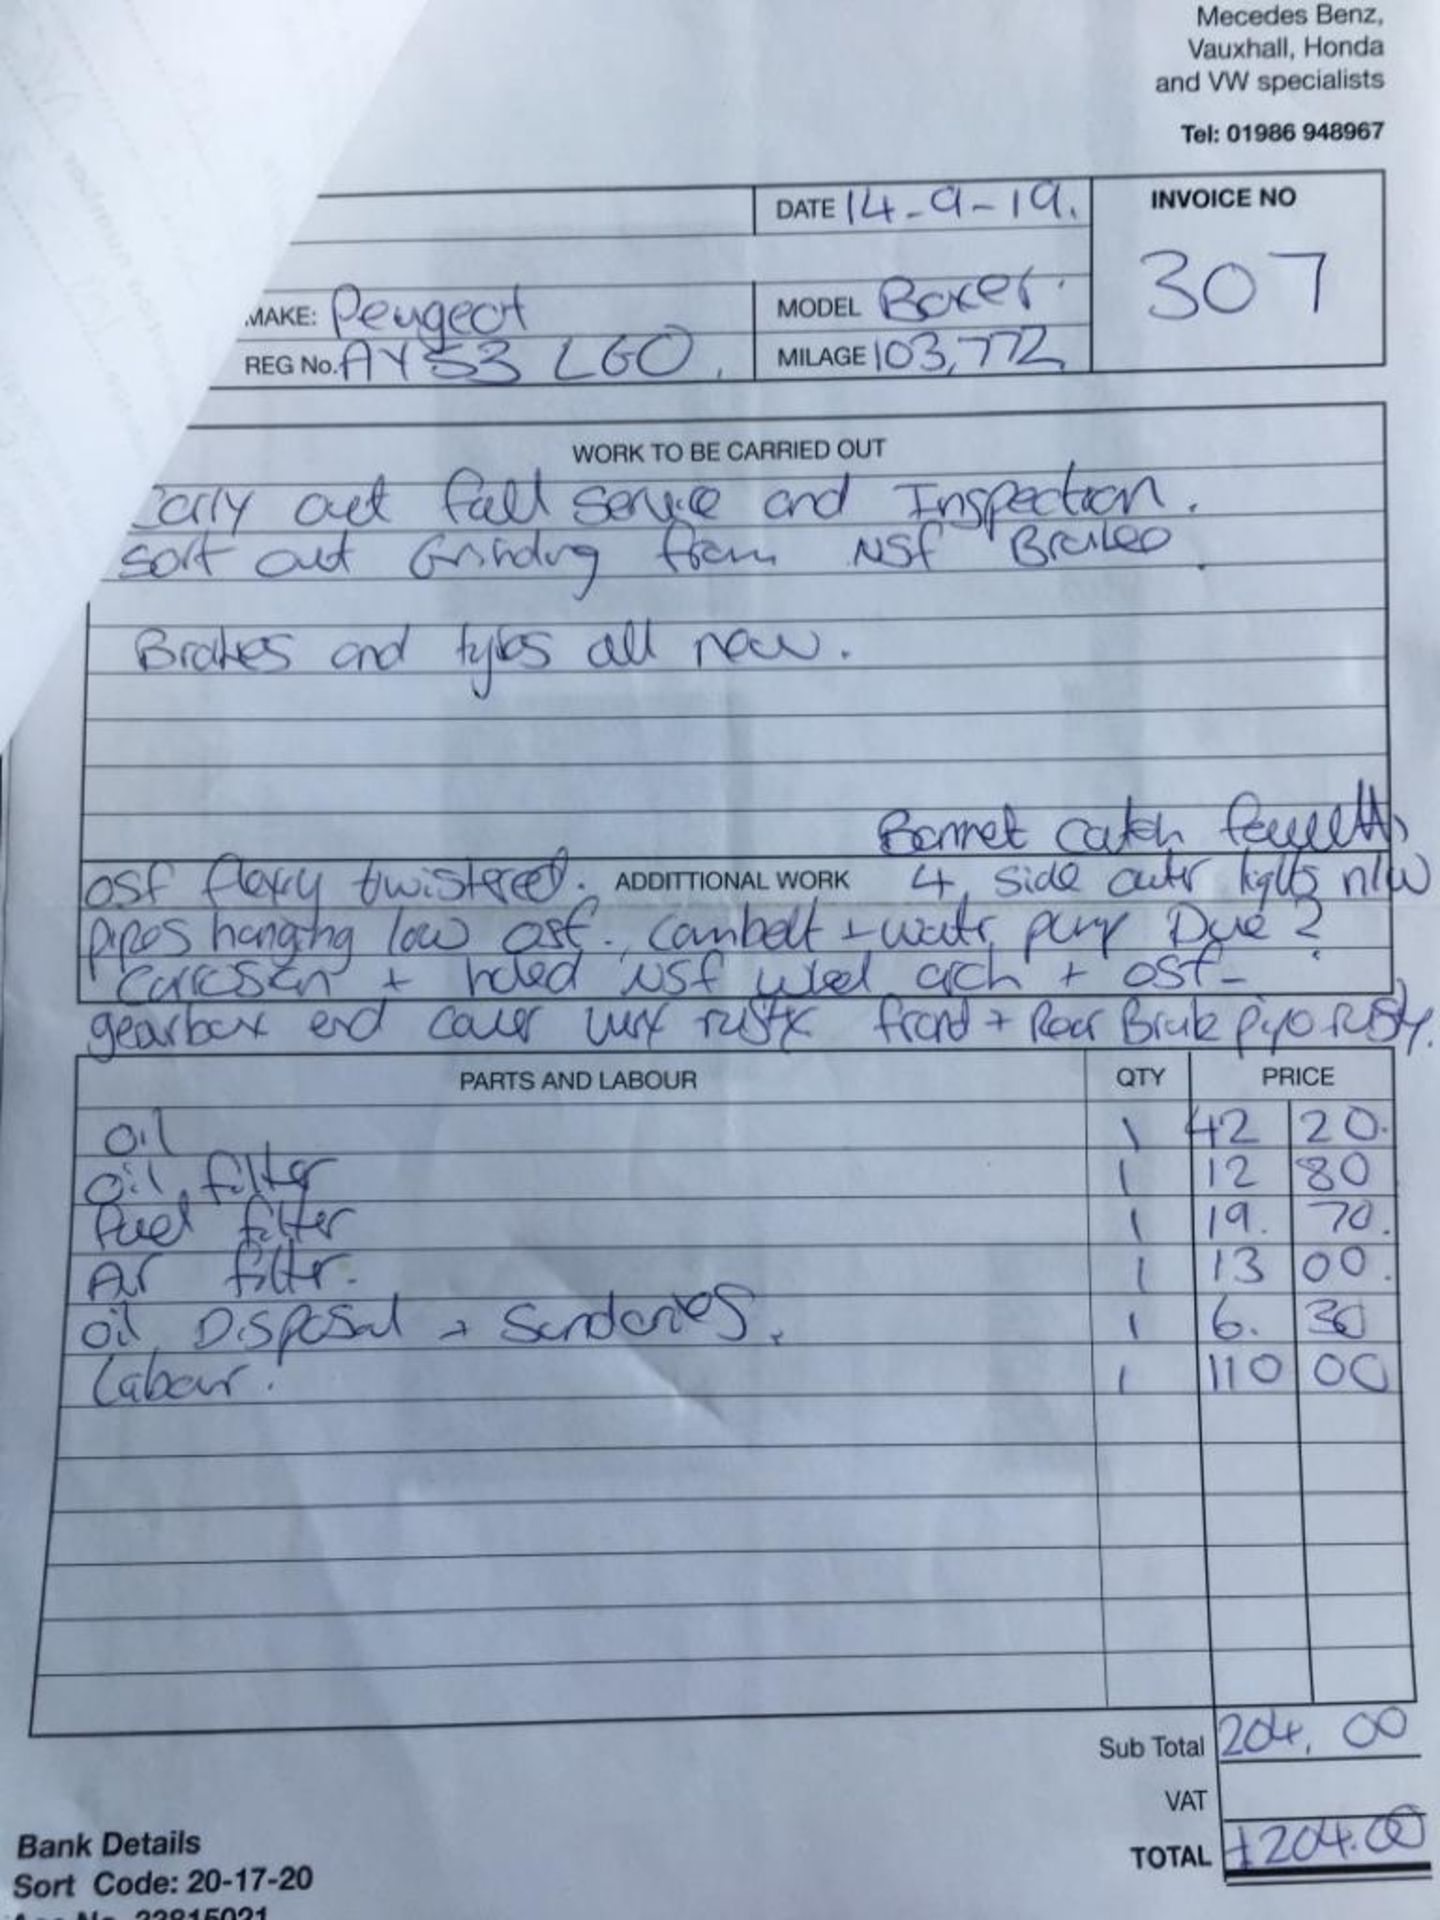 Mecedes Benz,
Vauxhall, Honda
and VW specialists
Tel: 01986 948967
DATE 14-9-19.
INVOICE NO
307
MAKE: Peugeot
MODEL Boxer.
REG No. AY53 LGO.
MILAGE 103,772
WORK TO BE CARRIED OUT
Carry out full service and Inspection.
sort out Grinding from NSF Brakes.
Brakes and tyres all new.
Bonnet catch faulty
osf flexy twistered. ADDITTIONAL WORK 4 side outer lights n/w
pipes hanging low osf. Cambelt + water pump Due?
Carrosion + holed NSF wheel arch + OSF-
gearbox end cover very rusty front + Rear Brake pipe rusty.
PARTS AND LABOUR QTY PRICE
oil 1 42 20.
oil filter 1 12 80
fuel filter 1 19. 70.
Air filter. 1 13 00.
oil Disposal + Sundaries. 1 6. 30
Labour. 1 110 00
Sub Total 204.00
VAT
TOTAL £204.00
Bank Details
Sort Code: 20-17-20